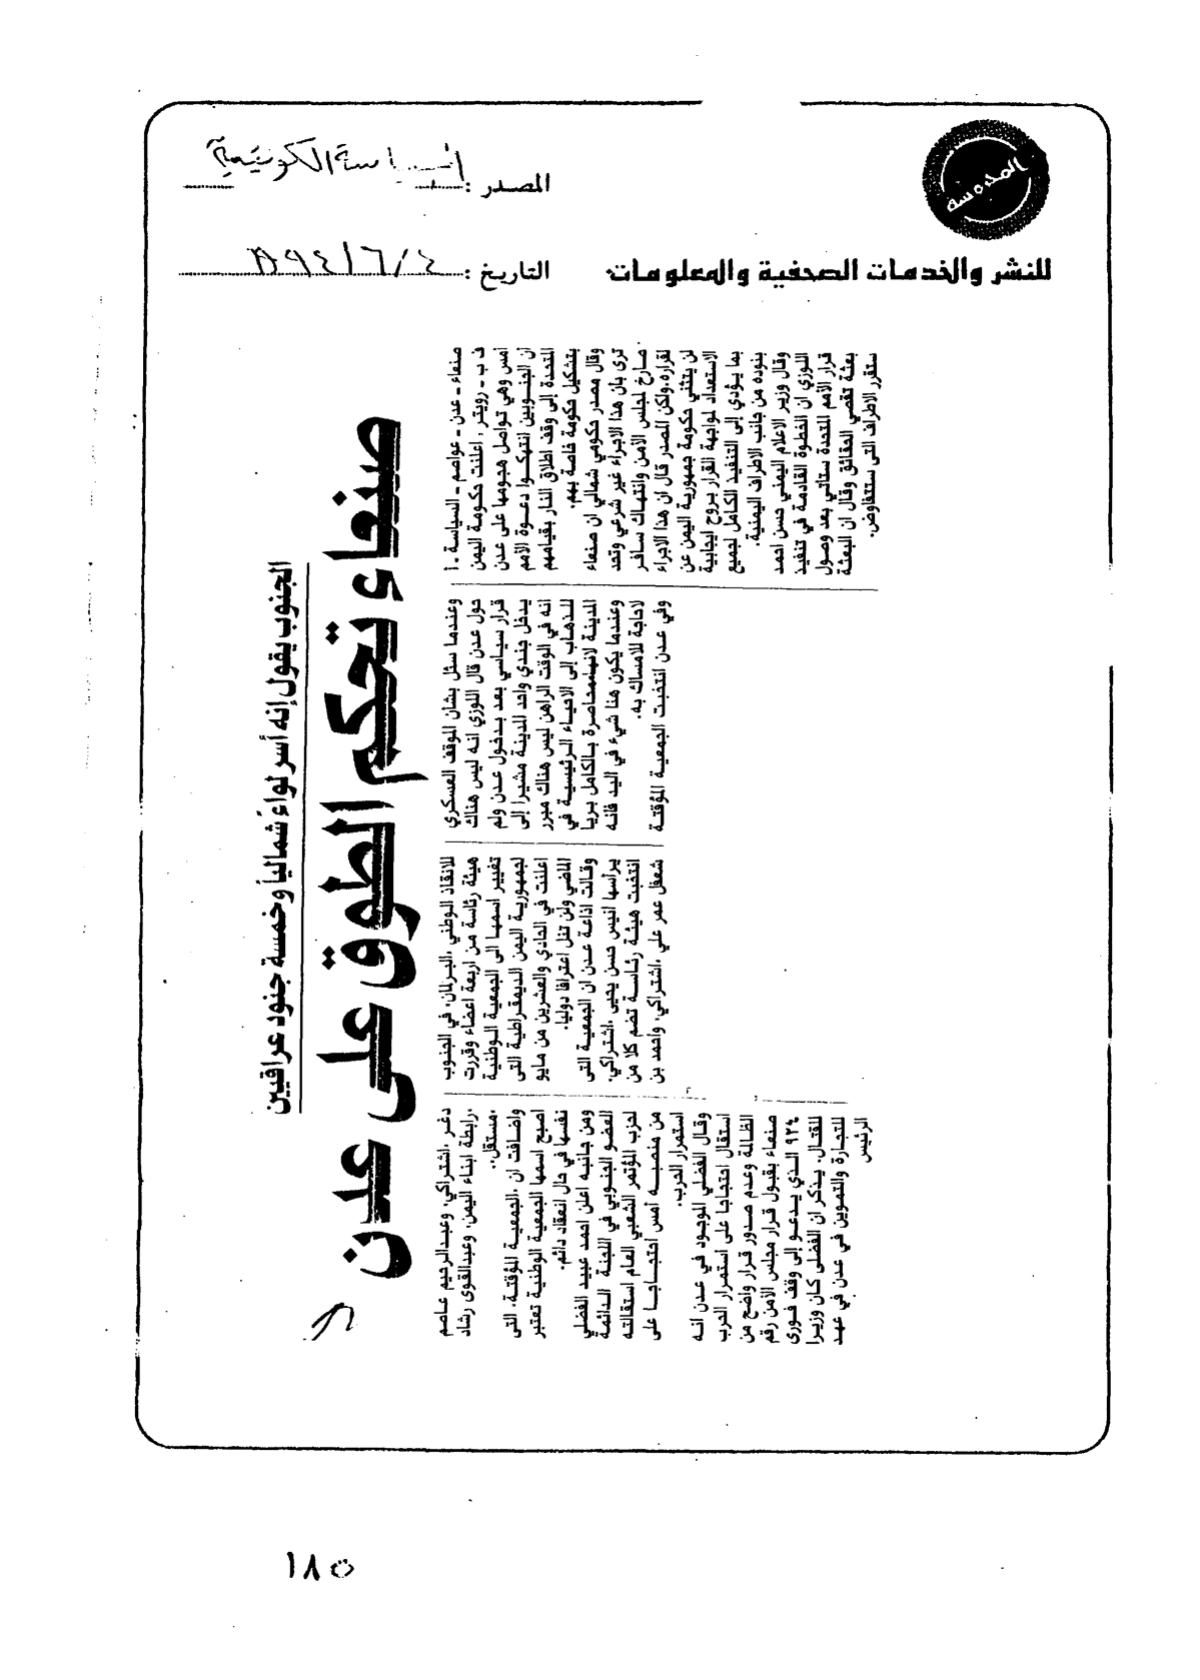 المدوسة
للنشر والخدمات الصحفية والمعلومات
المصدر : السياسة الكويتية
التاريخ : ٤/٦/
الجنوب يقول إنه أسر لواء شماليا وخمسة جنود عراقيين
صنعاء تحكم الطوق على عدن
صنعاء ـ عدن ـ عواصم ـ السياسة ـ ا
ف ب ـ رويتر ، اعلنت حكومة اليمن
امس وهي تواصل هجومها على عدن
ان الجنوبيين انتهكوا دعوة الامم
المتحدة إلى وقف اطلاق النار بقيامهم
بتشكيل حكومة خاصة بهم.
وقال مصدر حكومي شمالي ان صنعاء
ترى بان هذا الاجراء غير شرعي وتحد
صارخ لمجلس الأمن وانتهاك سافر
لقراره.ولكن المصدر قال ان هذا الاجراء
لن يثني حكومة جمهورية اليمن عن
الاستعداد لمواجهة القرار بروح ايجابية
بما يؤدي إلى التنفيذ الكامل لجميع
بنوده من جانب الاطراف اليمنية.
وقال وزير الاعلام اليمني حسن احمد
اللوزي ان الخطوة القادمة في تنفيذ
قرار الأمم المتحدة ستأتي بعد وصول
بعثة تقصي الحقائق وقال ان البعثة
ستقرر الاطراف التي ستتفاوض.
وعندما سئل بشان الموقف العسكري
حول عدن قال اللوزي انه ليس هناك
قرار سياسي بعد بدخول عدن ولم
يدخل جندي واحد المدينة مشيرا إلى
انه في الوقت الراهن ليس هناك مبرر
للذهاب إلى الاحياء الرئيسية في
المدينة لانها محاصرة بالكامل بريا
وعندما يكون هنا شيء في اليد فانه
لاحاجة للامساك به.
وفي عدن انتخبت الجمعية المؤقتة
للانقاذ الوطني ،البرلمان، في الجنوب
هيئة رئاسة من اربعة اعضاء وقررت
تغيير اسمها الى الجمعية الوطنية
لجمهورية اليمن الديمقراطية التى
اعلنت في الحادي والعشرين من مايو
الماضي ولن تنل اعترافا دوليا.
وقالت اذاعة عدن ان الجمعية التى
يراسها انيس حسن يحيى ،اشتراكي،
انتخبت هيئة رئاسة تضم كلا من
شعفل عمر علي ،اشتراكي، واحمد بن
دغر ،اشتراكي، وعبدالرحيم عاصم
،رابطة ابناء اليمن، وعبدالقوى رشاد
،مستقل،.
واضافت ان ،الجمعية المؤقتة، التى
اصبح اسمها الجمعية الوطنية تعتبر
نفسها في حال انعقاد دائم.
ومن جانبه اعلن احمد عبيد الفضلي
العضو الجنوبي في اللجنة الدائمة
لحزب المؤتمر الشعبي العام استقالته
من منصبه امس احتجاجا على
استمرار الحرب.
وقال الفضلي الموجود في عدن انه
استقال احتجاجا على استمرار الحرب
الظالمة وعدم صدور قرار واضح من
صنعاء بقبول قرار مجلس الأمن رقم
٩٢٤ الذي يدعو إلى وقف فورى
للقتال. يذكر ان الفضلي كان وزيرا
للتجارة والتموين في عدن في عهد
الرئيس
١٨٥